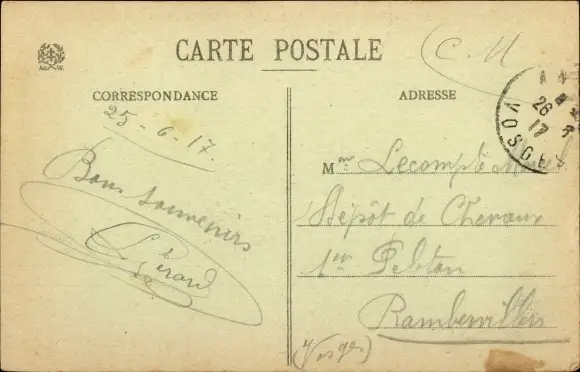 CARTE POSTALE
C M
CORRESPONDANCE
ADRESSE
25-6-17.
Bons souvenirs
Gérard
Mon Lecompte
Dépôt de Chevaux
1er Peloton
Rambervillers
(Vosges)
26
17
VOSGES